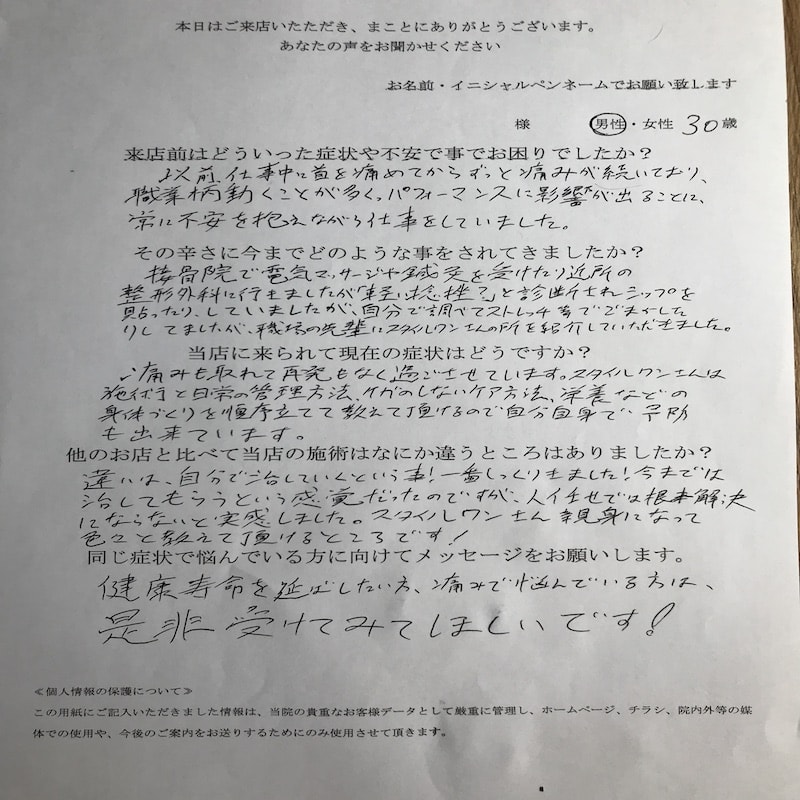 本日はご来店いたただき、まことにありがとうございます。
あなたの声をお聞かせください
お名前・イニシャルペンネームでお願い致します
様 男性・女性 30歳
来店前はどういった症状や不安で事でお困りでしたか？
以前、仕事中に首を痛めてからずっと痛みが続いており、
職業柄動くことが多く、パフォーマンスに影響が出ることに、
常に不安を抱えながら仕事をしていました。
その辛さに今までどのような事をされてきましたか？
接骨院で電気マッサージや鍼灸を受けたり近所の
整形外科に行きましたが「軽い捻挫？」と診断されシップを
貼ったり、していましたが、自分で調べてストレッチ等でごまかした
りしてましたが、職場の先輩にスタイルワンさんの所を紹介していただきました。
当店に来られて現在の症状はどうですか？
痛みも取れて再発もなく過ごさせています。スタイルワンさんは
施術と日常の管理方法、ケガのしないケア方法、栄養などの
身体づくりを順序立てて教えて頂けるので自分自身で予防
も出来ています。
他のお店と比べて当店の施術はなにか違うところはありましたか？
違いは、自分で治していくという事！一番しっくりきました！今までは
治してもらうという感覚だったのですが、人任せでは根本解決
にならないと実感しました。スタイルワンさん親身になって
色々と教えて頂けるところです！
同じ症状で悩んでいる方に向けてメッセージをお願いします。
健康寿命を延ばしたい方、痛みで悩んでいる方は、
是非受けてみてほしいです！
≪個人情報の保護について≫
この用紙にご記入いただきました情報は、当院の貴重なお客様データとして厳重に管理し、ホームページ、チラシ、院内外等の媒
体での使用や、今後のご案内をお送りするためにのみ使用させて頂きます。